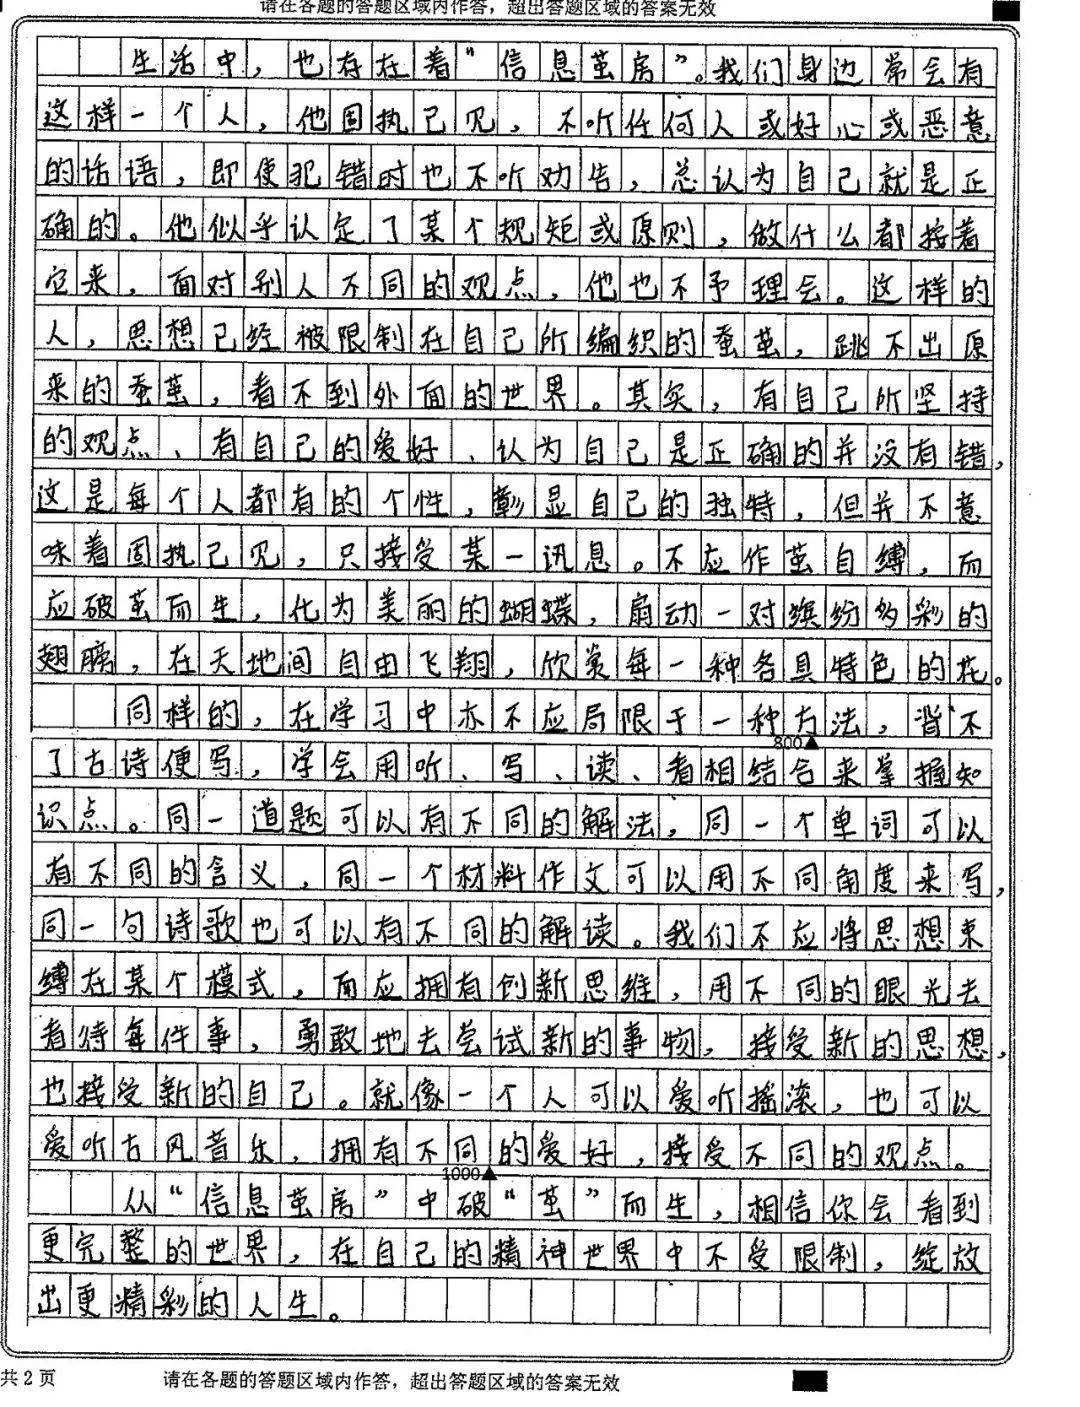 请在各题的答题区域内作答，超出答题区域的答案无效
生活中，也存在着“信息茧房”。我们身边常会有
这样一个人，他固执己见，不听任何人或好心或恶意
的话语，即使犯错时也不听劝告，总认为自己就是正
确的。他似乎认定了某个规矩或原则，做什么都按着
它来，面对别人不同的观点，他也不予理会。这样的
人，思想已经被限制在自己所编织的蚕茧，跳不出原
来的蚕茧，看不到外面的世界。其实，有自己所坚持
的观点、有自己的爱好、认为自己是正确的并没有错，
这是每个人都有的个性，彰显自己的独特，但并不意
味着固执己见，只接受某一讯息。不应作茧自缚，而
应破茧而生，化为美丽的蝴蝶，扇动一对缤纷多彩的
翅膀，在天地间自由飞翔，欣赏每一种各具特色的花。
同样的，在学习中亦不应局限于一种方法，背不
800▲
了古诗便写，学会用听、写、读、看相结合来掌握知
识点。同一道题可以有不同的解法，同一个单词可以
有不同的含义，同一个材料作文可以用不同角度来写，
同一句诗歌也可以有不同的解读。我们不应将思想束
缚在某个模式，而应拥有创新思维，用不同的眼光去
看待每件事，勇敢地去尝试新的事物，接受新的思想，
也接受新的自己。就像一个人可以爱听摇滚，也可以
爱听古风音乐，拥有不同的爱好，接受不同的观点。
1000▲
从“信息茧房”中破“茧”而生，相信你会看到
更完整的世界，在自己的精神世界中不受限制，绽放
出更精彩的人生。
共2页 请在各题的答题区域内作答，超出答题区域的答案无效